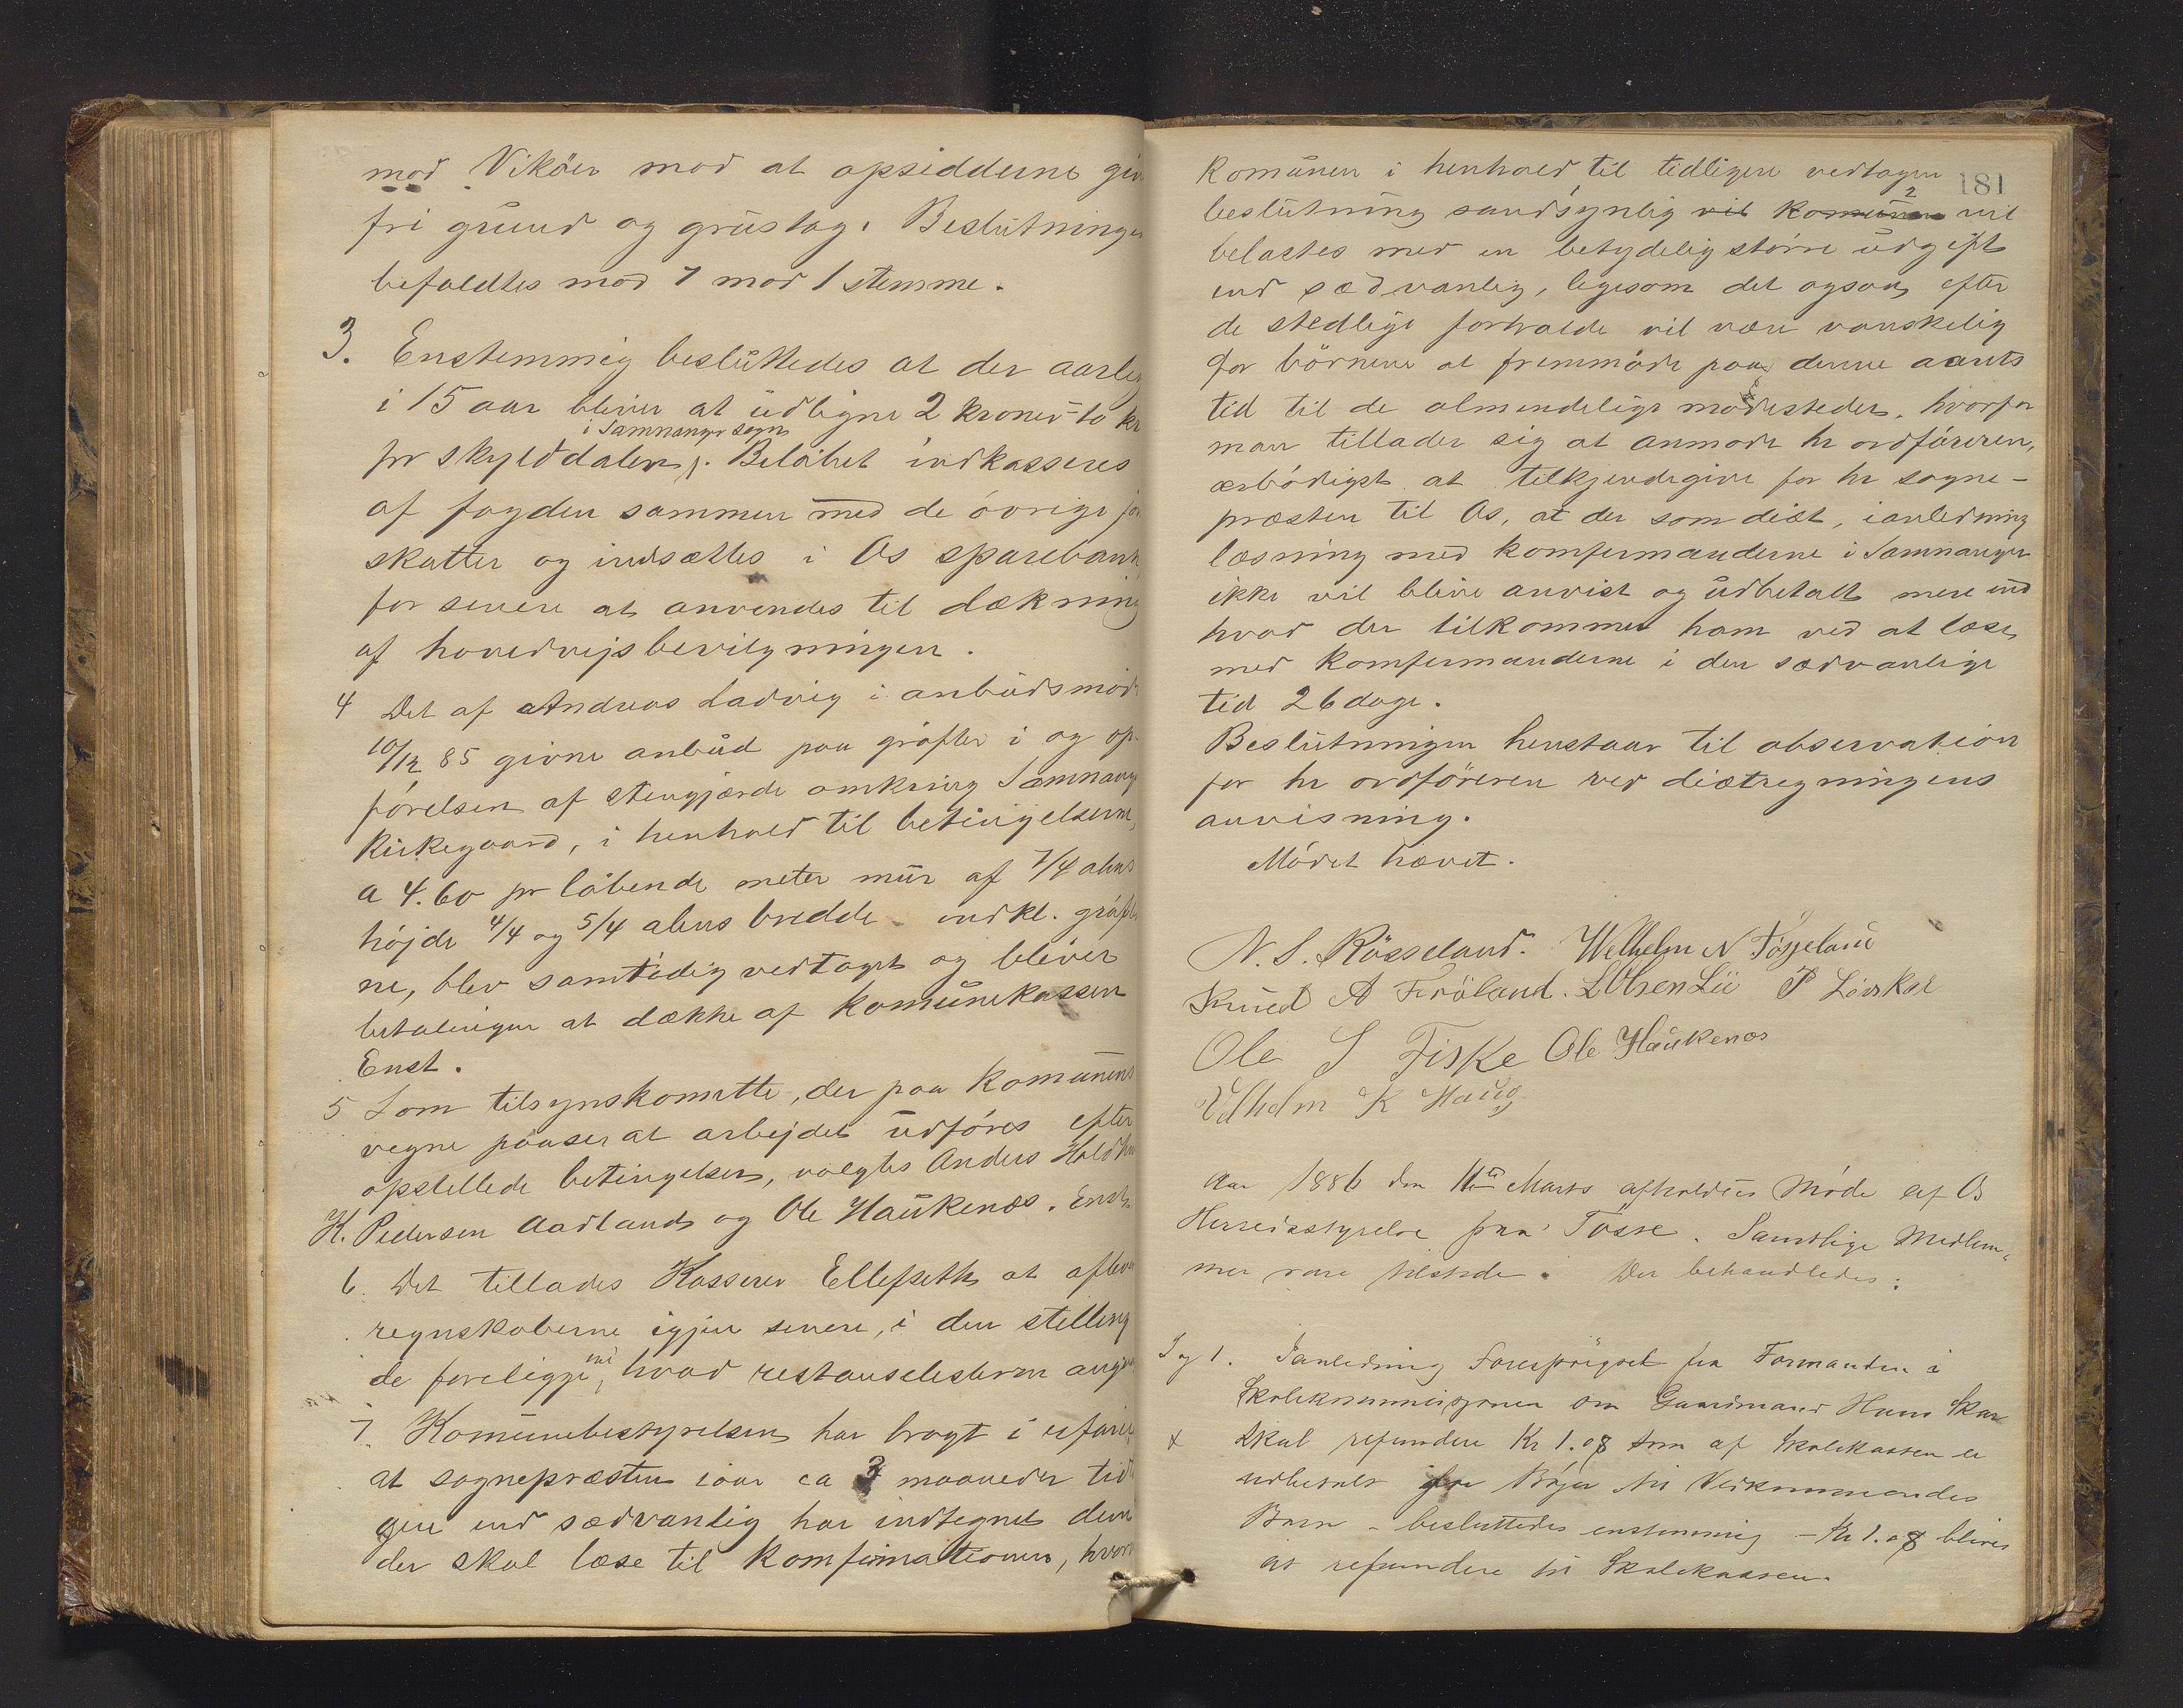 mod Vikøer mod at opsidderne giv
fri grund og grustag. Beslutninge
befaldtes mod 7 mod 1 stemme.
3. Enstemmig besluttedes at der aarlig
i 15 aar bliver at udligne 2 kroner = to kr
i Samnanger sogn
pr skylddaler. Beløbet indkasseres
af fogden sammen med de øvrige jor
skatter og indsættes i Os sparebank,
for senere at anvendes til dækning
af hovedvejsbevilgningen.
4 Det af Andreas Ladvig i anbudsmøde
10/12 85 givne anbud paa grøfter i og op-
førelsen af stengjærde omkring Samnange
kirkegaard, i henhold til betingelserne,
a 4.60 pr løbende meter mur af 7/4 alens
højde 4/4 og 5/4 alens bredde indkl. grøfte
ne, blev samtidig vedtaget og bliver
betalingen at dække af komunekassen
Enst.
5 Som tilsynskomitte, der paa komunens
vegne paaser at arbejdet udføres efter
opstillede betingelser, valgtes Anders Holdhu
H. Pedersen Aadland og Ole Haukenæs. Enst.
6. Det tillades Kasserer Ellefseth at aflever
regnskaberne igjen senere, i den stilling
de foreligge nu, hvad restanselisterne angaar
7. Komunebestyrelsen har bragt i erfaring
at sognepræsten iaar ca 3 maaneder tid
gere end sædvanlig har indtegnet dem
der skal læse til komfirmationen, hvor
181
komunen i henhold til tidligere vedtagen
beslutning sandsynlig vil komunen vil
belastes med en betydelig større udgift
end sædvanlig, ligesom det ogsaa efter
de stedlige forholde vil være vanskelig
for børnene at fremmøde paa denne aarets
tid til de almindelige mødesteder, hvorfor
man tillader sig at anmode hr ordføreren,
ærbødigst at tilkjendegive for hr sogne-
præsten til Os, at der som diæt, ianledning
læsning med komfermanderne i Samnanger
ikke vil blive anvist og udbetalt mere end
hvad der tilkommer ham ved at læse
med komfermanderne i den sædvanlige
tid 26 dage.
Beslutningen henstaar til observation
for hr ordføreren ved diætregningens
anvisning.
Mødet hævet.
N. S. Røsseland. Welhelm N Tøsseland
Knud A Frøland. L Olsen Lii P Løvskal
Ole S Fiske Ole Haukenæs
Vilhelm K Haug
Aar 1886 den 11te Marts afholdtes Møde af Os
Herredsstyrelse paa Tøsse. Samtlige Medlem-
mer vare tilstede. Der behandledes:
Sag 1. Ianledning Forespørgsel fra Formanden i
Skolekommisjonen om Gaardmand Hans Skar
skal refundere Kr 1.08 som af Skolekassen er
udbetalt for Bøger til Vedkommendes
Barn - besluttedes enstemmig - Kr 1.08 bliver
at refundere til Skolekassen.